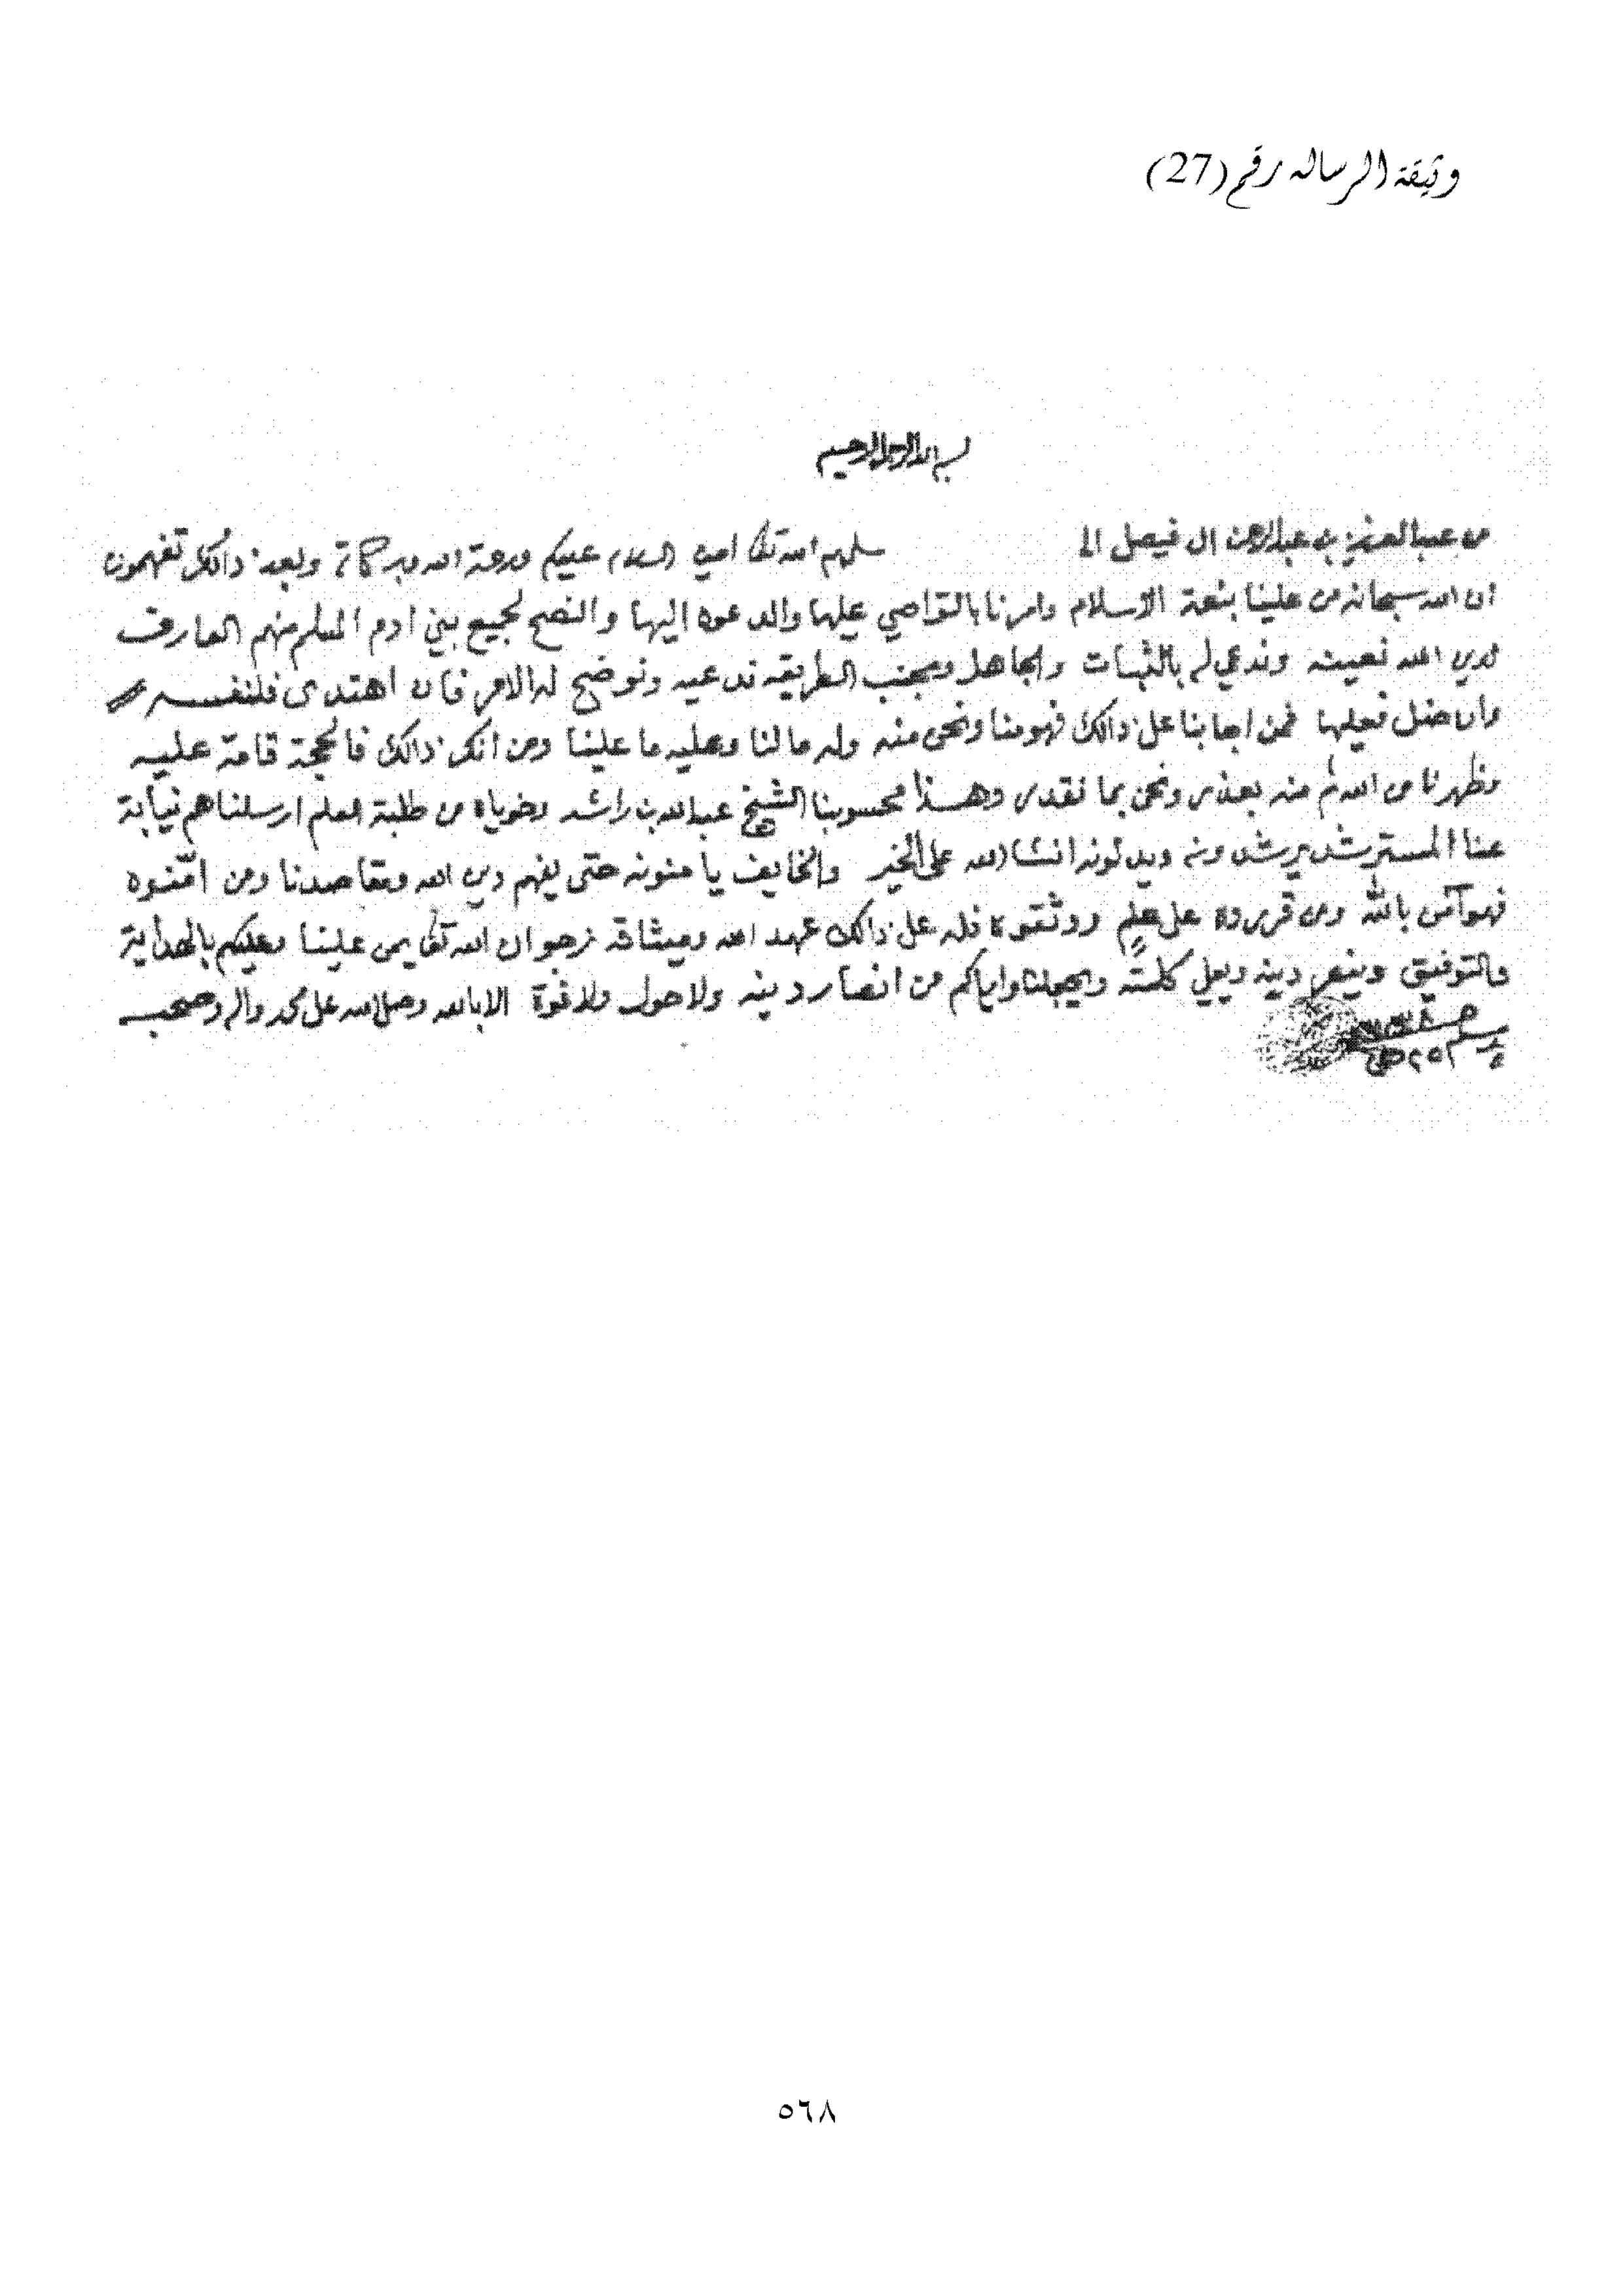 وثيقة الرساله رقم (27)
بسم الله الرحمن الرحيم
من عبد العزيز بن عبد الرحمن ال فيصل الى سلمهم الله تعالى امين السلام عليكم ورحمة الله وبركاته وبعد ذالك تفهمون
ان الله سبحانه من علينا بنعمة الاسلام وامرنا بالتواصي عليها والدعوه اليها والنصح لجميع بني ادم المسلم منهم العارف
لدين الله نعينه وندعي له بالثبات والجاهل ومجنب الطريقه ندعيه ونوضح له الامر فان اهتدى فلنفسه
وان ضل فعليها فمن اجابنا على ذالك فهو منا ونحن منه وله ما لنا وعليه ما علينا ومن انكر ذالك فالحجة قامة عليه
وظهرنا من الله ثم منه بعذر ونحن بما نقدر وهذا محسوبنا الشيخ عبد الله بن راشد وخوياه من طلبة العلم ارسلناهم نيابة
عنا المسترشد يرشدونه ويدلونه انشا الله على الخير والخايف يامنونه حتى يفهم دين الله ومقاصدنا ومن امنوه
فهو آمن بالله ومن قرروه على علم ووثقوه فله على ذالك عهد الله وميثاقه نرجو ان الله تعالى يمن علينا وعليكم بالهداية
والتوفيق وينصر دينه ويعلي كلمته ويجعلنا واياكم من انصار دينه ولا حول ولا قوة الا بالله وصلى الله على محمد واله وصحبه
وسلم
٥٦٨